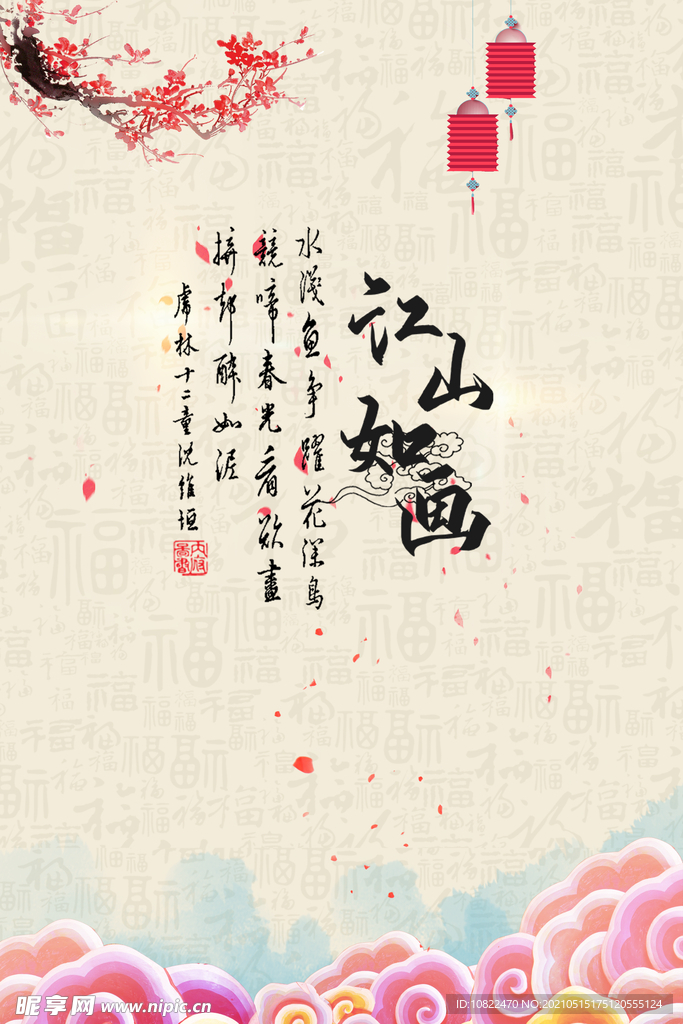 江山如画
水淺魚争躍花深鳥
競啼春光看欲盡
拚却醉如泥
虎林十二童沈維垣
昵享网 www.nipic.cn
ID:10822470 NO:20210515175120555124